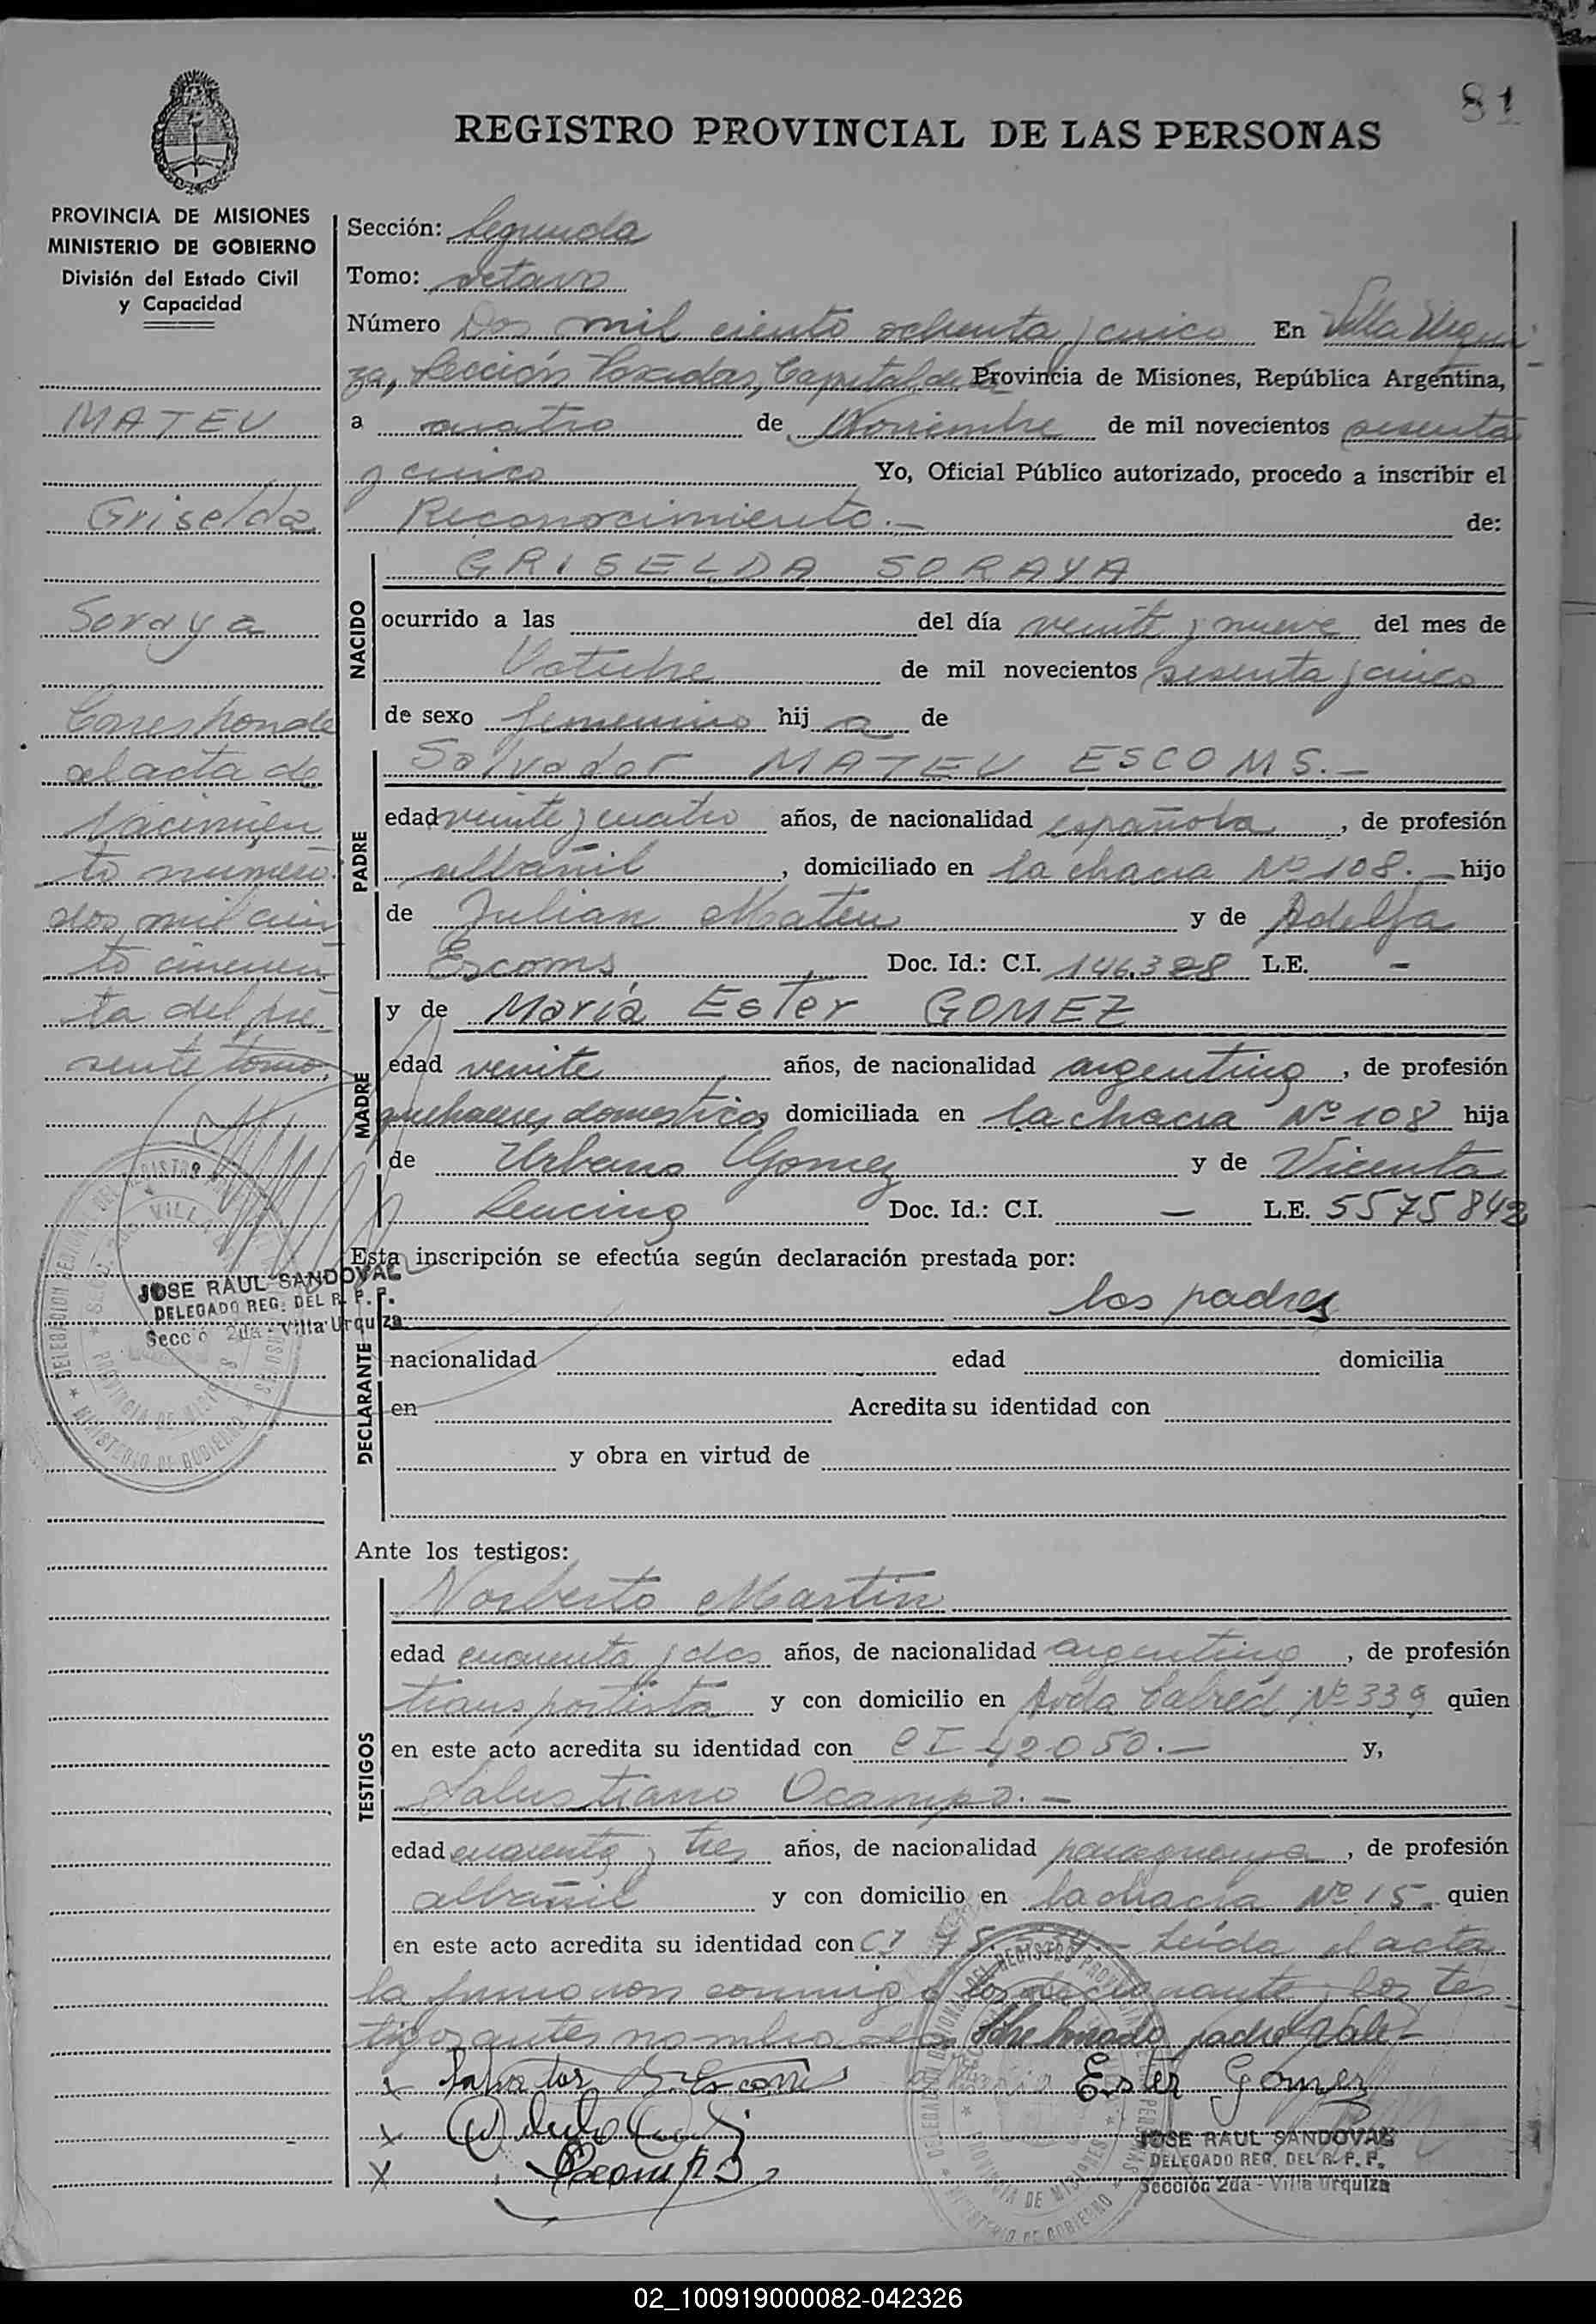 81
REGISTRO PROVINCIAL DE LAS PERSONAS
PROVINCIA DE MISIONES
MINISTERIO DE GOBIERNO
División del Estado Civil
y Capacidad
MATEU
Griselda
Soraya
Corresponde
al acta de
Nacimien
to número
dos mil cien
to cincuen
ta del pre
sente tomo.
JOSE RAUL SANDOVAL
DELEGADO REG. DEL R. P. P.
Secció 2da - Villa Urquiza
Sección: Segunda
Tomo: octavo
Número Dos mil ciento ochenta y cinco En Villa Urqui
za, Sección Posadas, Capital de la Provincia de Misiones, República Argentina,
a cuatro de Noviembre de mil novecientos sesenta
y cinco Yo, Oficial Público autorizado, procedo a inscribir el
Reconocimiento.- de:
NACIDO
GRISELDA SORAYA
ocurrido a las del día veinte y nueve del mes de
Octubre de mil novecientos sesenta y cinco
de sexo femenino hij a de
PADRE
Salvador MATEU ESCOMS.-
edad veinte y cuatro años, de nacionalidad española, de profesión
albañil, domiciliado en la chacra Nº 108.- hijo
de Julian Mateu y de Adelfa
Escoms Doc. Id.: C.I. 146.328 L.E. -
MADRE
y de María Ester GOMEZ
edad veinte años, de nacionalidad argentina, de profesión
quehaceres domesticos domiciliada en la chacra Nº 108 hija
de Urbano Gomez y de Vicenta
Doc. Id.: C.I. - L.E. 5575842
Esta inscripción se efectúa según declaración prestada por:
DECLARANTE
los padres
nacionalidad edad domicilia
en Acredita su identidad con
y obra en virtud de
Ante los testigos:
TESTIGOS
Norberto Martin
edad cuarenta y dos años, de nacionalidad argentina, de profesión
transportista y con domicilio en Avda Cabred Nº 339 quien
en este acto acredita su identidad con CI 42050.- y,
Salustiano Ocampo.-
edad cuarenta y tres años, de nacionalidad paraguaya, de profesión
albañil y con domicilio en la chacra Nº 15 quien
en este acto acredita su identidad con CI Leida el acta
la firmaron conmigo los tes
tigos antes padres Vale-
x Salvador Escoms Ester Gomez
x
x Ocampo
JOSE RAUL SANDOVAL
DELEGADO REG. DEL R. P. P.
Sección 2da - Villa Urquiza
02_100919000082-042326